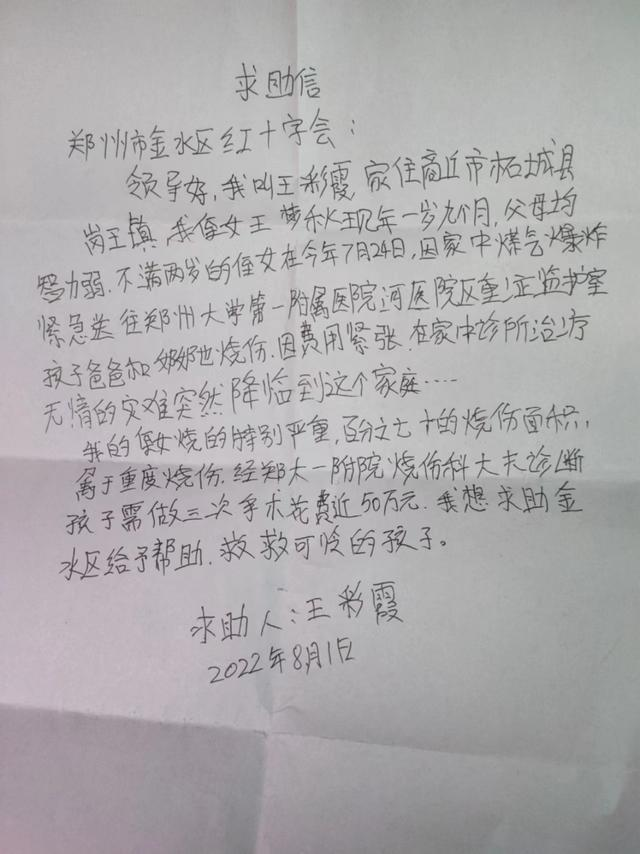 求助信
郑州市金水区红十字会：
领导好，我叫王彩霞，家住商丘市柘城县
岗王镇，我侄女王梦秋现年一岁九个月，父母均
智力弱．不满两岁的侄女在今年7月24日，因家中煤气爆炸
紧急送往郑州大学第一附属医院河医院区重症监护室
孩子爸爸和奶奶也烧伤．因费用紧张．在家中诊所治疗
无情的灾难突然降临到这个家庭……
我的侄女烧的特别严重，百分之七十的烧伤面积，
属于重度烧伤．经郑大一附院烧伤科大夫诊断
孩子需做三次手术花费近50万元．我想求助金
水区给予帮助．救救可怜的孩子。
求助人：王彩霞
2022年8月1日